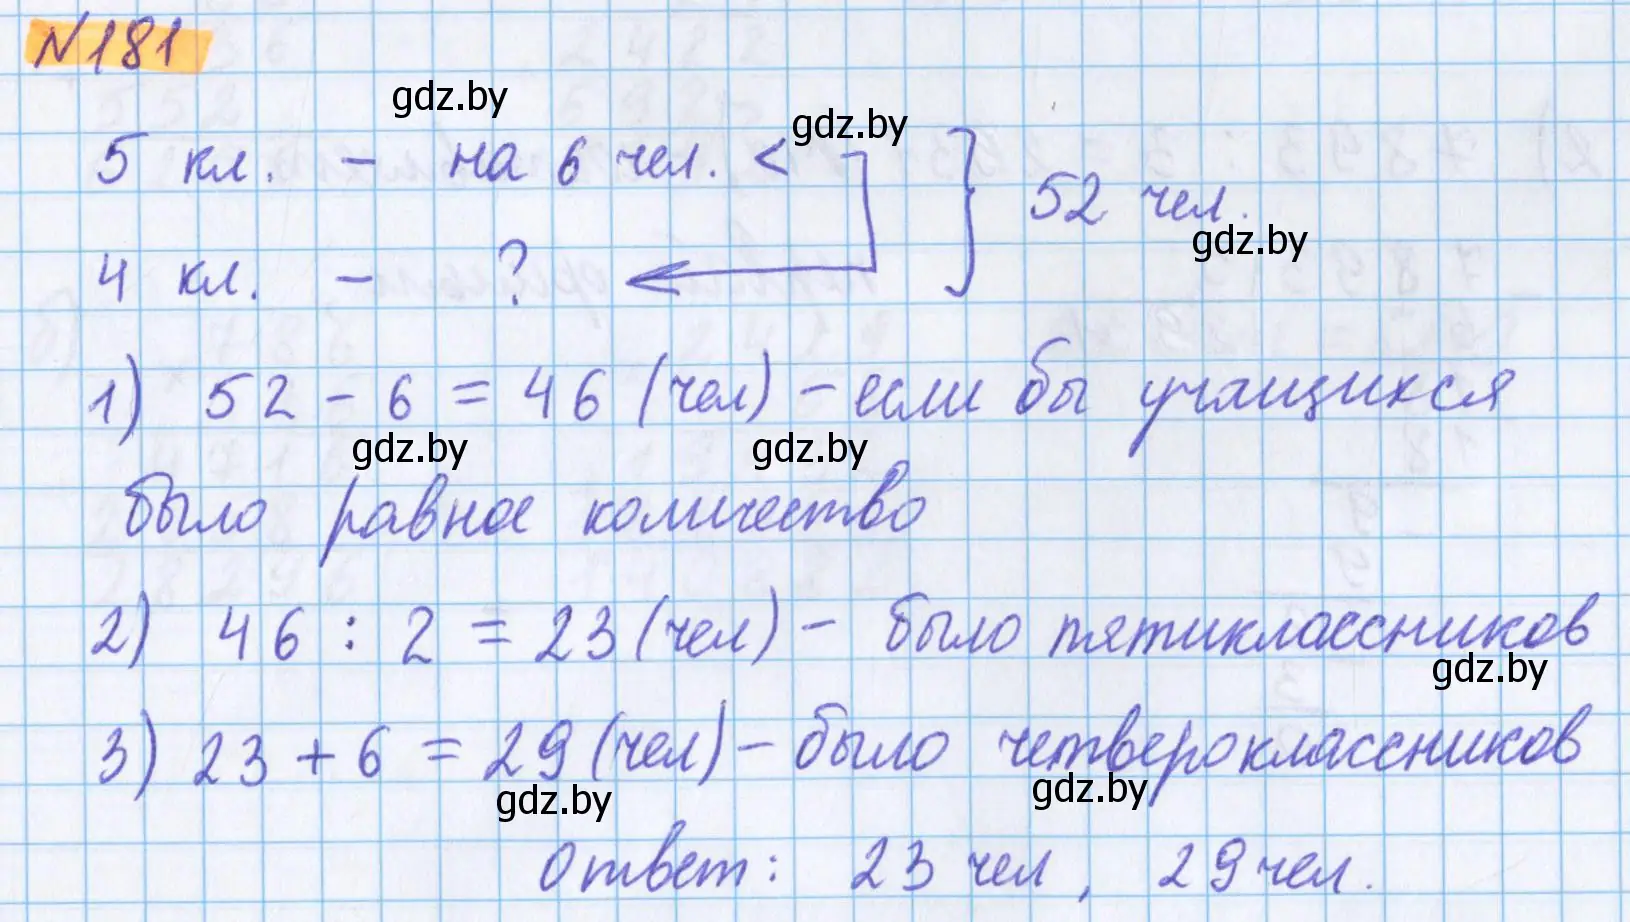 №181
gdz.by
gdz.by
5 кл. - на 6 чел. <
} 52 чел.
gdz.by
4 кл. - ?
1) 52 - 6 = 46 (чел) - если бы учащихся
gdz.by gdz.by
было равное количество
2) 46 : 2 = 23 (чел) - было пятиклассников
gdz.by
3) 23 + 6 = 29 (чел) - было четвероклассников
gdz.by gdz.by
ответ: 23 чел, 29 чел.